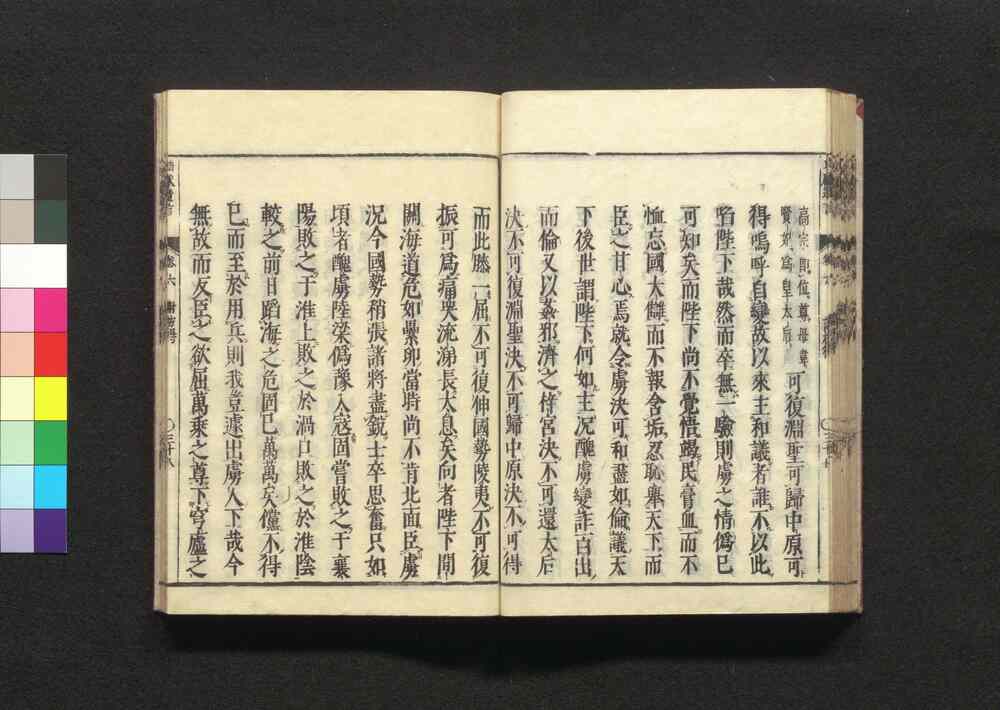 高宗即位尊母韋
賢妃為皇太后
可復淵聖可歸中原可
得嗚呼自變故以來主和議者誰不以此
啗陛下哉然而卒無一驗則虜之情偽已
可知矣而陛下尚不覺悟竭民膏血而不
恤忘國大讎而不報含垢忍恥舉天下而
臣之甘心焉就令虜決可和盡如倫議天
下後世謂陛下何如主況醜虜變詐百出
而倫又以姦邪濟之梓宮決不可還太后
決不可復淵聖決不可歸中原決不可得
而此膝一屈不可復伸國勢陵夷不可復
振可為痛哭流涕長太息矣向者陛下間
關海道危如累卵當時尚不肯北面臣虜
況今國勢稍張諸將盡銳士卒思奮只如
頃者醜虜陸梁偽豫入寇固嘗敗之于襄
陽敗之于淮上敗之於渦口敗之於淮陰
較之前日蹈海之危固已萬萬矣儻不得
已而至於用兵則我豈遽出虜人下哉今
無故而反臣之欲屈萬乘之尊下穹廬之
卷六
三十八